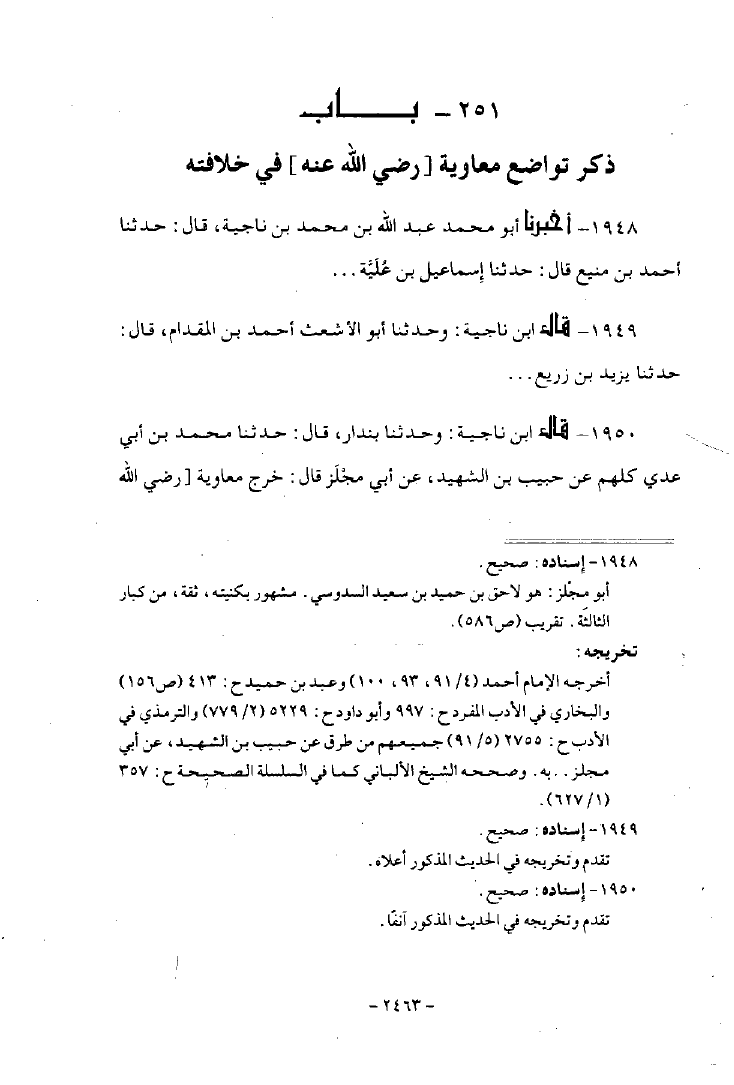 ٢٥١ – بـــــــاب
ذكر تواضع معاوية [رضي الله عنه] في خلافته
١٩٤٨– أخبرنا أبو محمد عبد الله بن محمد بن ناجية، قال: حدثنا
أحمد بن منيع قال: حدثنا إسماعيل بن عُلَيَّة...
١٩٤٩– قال ابن ناجية: وحدثنا أبو الأشعث أحمد بن المقدام، قال:
حدثنا يزيد بن زريع...
١٩٥٠– قال ابن ناجية: وحدثنا بندار، قال: حدثنا محمد بن أبي
عدي كلهم عن حبيب بن الشهيد، عن أبي مجْلَز قال: خرج معاوية [رضي الله
١٩٤٨– إسناده: صحيح.
أبو مجْلز: هو لاحق بن حميد بن سعيد السدوسي. مشهور بكنيته، ثقة، من كبار
الثالثة. تقريب (ص٥٨٦).
تخريجه:
أخرجه الإمام أحمد (٩١/٤، ٩٣، ١٠٠) وعبد بن حميد ح: ٤١٣ (ص١٥٦)
والبخاري في الأدب المفرد ح: ٩٩٧ وأبو داود ح: ٥٢٢٩ (٧٧٩/٢) والترمذي في
الأدب ح: ٢٧٥٥ (٩١/٥) جميعهم من طرق عن حبيب بن الشهيد، عن أبي
مجلز.. به. وصححه الشيخ الألباني كما في السلسلة الصحيحة ح: ٣٥٧
(٦٢٧/١).
١٩٤٩– إسناده: صحيح.
تقدم وتخريجه في الحديث المذكور أعلاه.
١٩٥٠– إسناده: صحيح.
تقدم وتخريجه في الحديث المذكور آنفًا.
– ٢٤٦٣ –